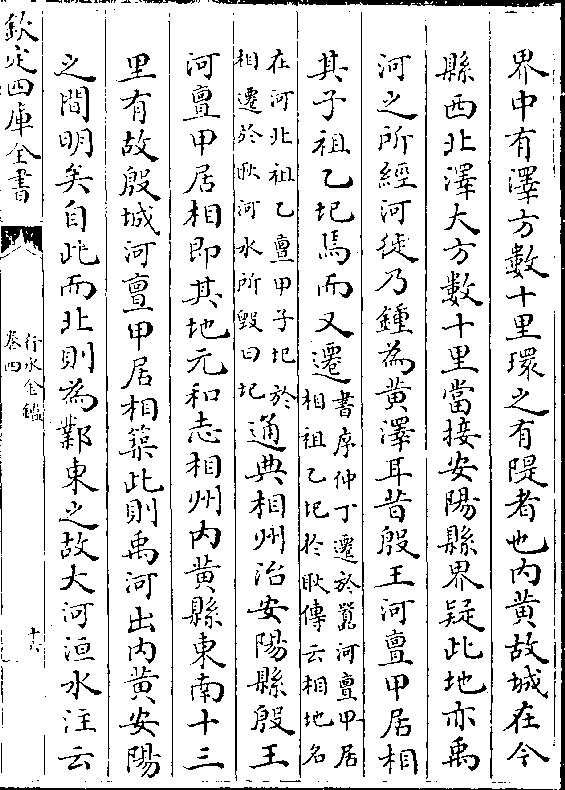 界中有澤方數十里環之有隄者也内黄故城在今
縣西北澤大方數十里當接安陽縣界疑此地亦禹
河之所經河徙乃鍾為黄澤耳昔殷王河亶甲居相
其子祖乙圮焉而又遷
書序仲丁遷於嚻河亶甲居
相祖乙圮於耿傳云相地名
在河北祖乙亶甲子圮於
相遷於耿河水所毁曰圮
通典相州治安陽縣殷王
河亶甲居相即其地元和志相州内黄縣東南十三
里有故殷城河亶甲居相築此則禹河出内黄安陽
之間明矣自此而北則為鄴東之故大河洹水注云
欽定四庫全書
行水金鑑
卷四
十六